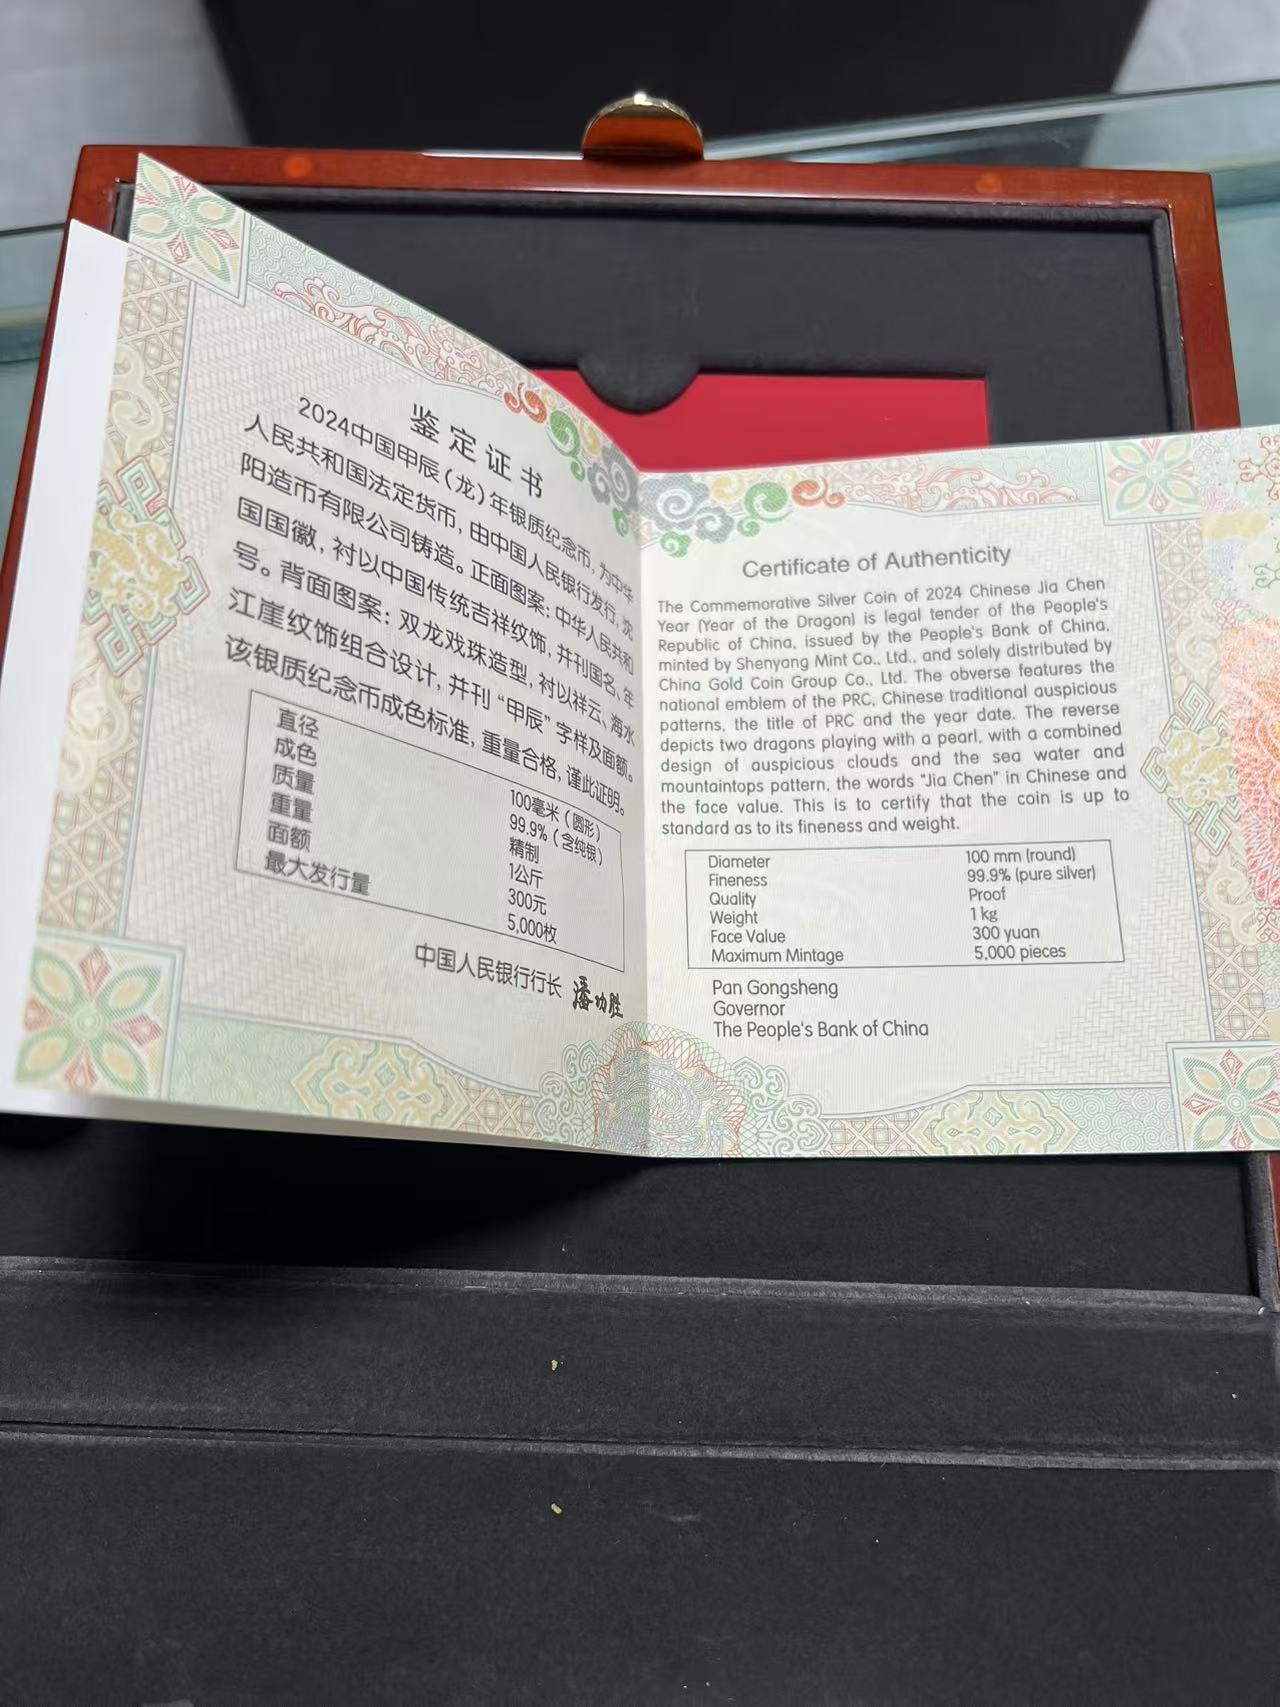 鉴定证书
2024中国甲辰（龙）年银质纪念币，为中华
人民共和国法定货币，由中国人民银行发行，沈
阳造币有限公司铸造。正面图案：中华人民共和
国国徽，衬以中国传统吉祥纹饰，并刊国名、年
号。背面图案：双龙戏珠造型，衬以祥云、海水
江崖纹饰组合设计，并刊“甲辰”字样及面额。
该银质纪念币成色标准，重量合格，谨此证明。
直径 100毫米（圆形）
成色 99.9%（含纯银）
质量 精制
重量 1公斤
面额 300元
最大发行量 5,000枚
中国人民银行行长 潘功胜
Certificate of Authenticity
The Commemorative Silver Coin of 2024 Chinese Jia Chen
Year (Year of the Dragon) is legal tender of the People's
Republic of China, issued by the People's Bank of China,
minted by Shenyang Mint Co., Ltd., and solely distributed by
China Gold Coin Group Co., Ltd. The obverse features the
national emblem of the PRC, Chinese traditional auspicious
patterns, the title of PRC and the year date. The reverse
depicts two dragons playing with a pearl, with a combined
design of auspicious clouds and the sea water and
mountaintops pattern, the words "Jia Chen" in Chinese and
the face value. This is to certify that the coin is up to
standard as to its fineness and weight.
Diameter 100 mm (round)
Fineness 99.9% (pure silver)
Quality Proof
Weight 1 kg
Face Value 300 yuan
Maximum Mintage 5,000 pieces
Pan Gongsheng
Governor
The People's Bank of China